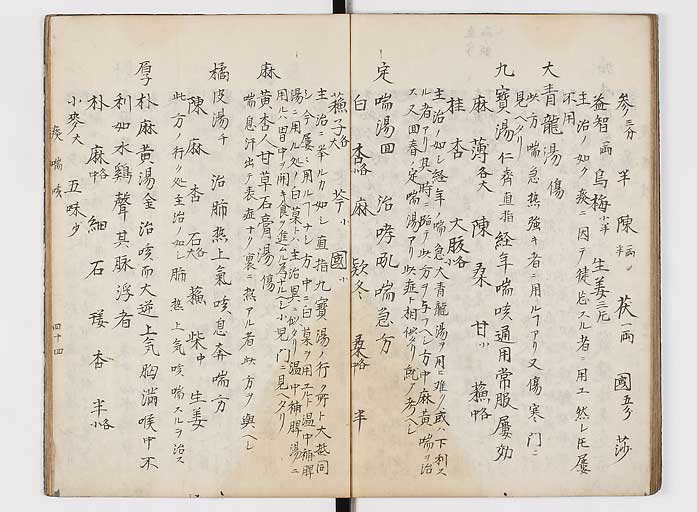 參三分 半 陳 茯一両 國五分 莎
益智一両 烏梅小半 生姜三片
主治ノ如ク痰ニ因テ徒 スル者ニ用ユ然レ𪜈屡
不用
大青龍湯 傷
此方喘急熱強キ者ニ用ルヿアリ又傷寒門ニ
見ヘタリ
九寶湯 仁齊直指 経年喘咳通用常服屡効
麻 薄各大 陳 桑 甘小 蘓中略
桂 杏 大腹各小
主治ノ如シ経年ノ喘急大青龍湯ヲ用ヒ難ク或ハ下利ス
ル者アリ其時ニ臨テ此方ヲ与フヘシ方中麻黄喘ヲ治
ス又回春ノ定喘湯アリ此症ト相似タリ就テ考ヘシ
定喘湯回 治哮吼喘急方
白 杏略 麻 欵冬 桑中略 半
蘓子各大 芩小 國小
主治ニ挙ル如シ直指九寶湯ノ行ク所ト大抵同
シ今屡用ルヿナシ方中ニ白菓ヲ用ユル 温中補脾
湯ニ用ル処ノ白菓トハ主治異ニ似タリ温中補脾湯ニ
用ルハ胃中ヲ開キ食ヲ進ム ヘシ小児門ニ見ヘタリ
麻黄杏人甘草石膏湯 傷
喘息汗出テ表症ナク裏ニ熱アル者此方ヲ與ヘシ
橘皮湯千 治肺熱上氣咳息奔喘方
陳 麻 杏 石各大 蘓 柴中 生姜
此方ノ行ク処主治ノ如シ肺熱上気咳喘スルヲ治ス
厚朴麻黄湯金 治咳而大逆上気胸滿喉中不
利如水鷄聲其脉浮者
朴 麻中略 細 石 杏 半各小
小麥大 五味少
痰喘咳 四十四